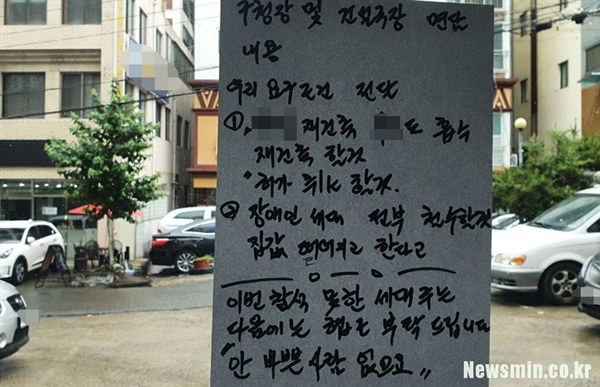 구청장 및 건설국장 면담
내용
우리 요구조건 전달
①. 재건축 도 흡수
재건축 할것
"허가 취 할것.
② 장애인 세대 전부 철수할것
집값 떨어지고 한다고
이번 참석 못한 세대주는
다음에는 협조 부탁 드립니다
"안 바쁜 사람 없으로"
VA
Newsmin.co.kr